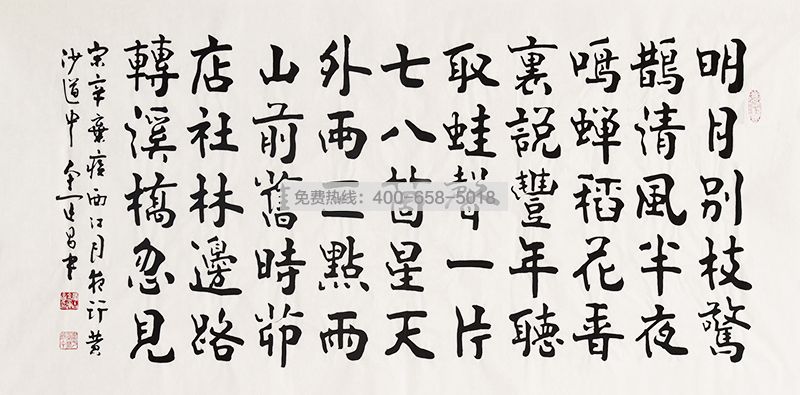 明月别枝驚
鵲清風半夜
鳴蝉稻花香
裏説豐年聽
取蛙聲一片
七八箇星天
外兩三點雨
山前舊時茆
店社林邊路
轉溪橋忽見
宋辛棄疾西江月夜行黄
沙道中
免费热线：400-658-5018